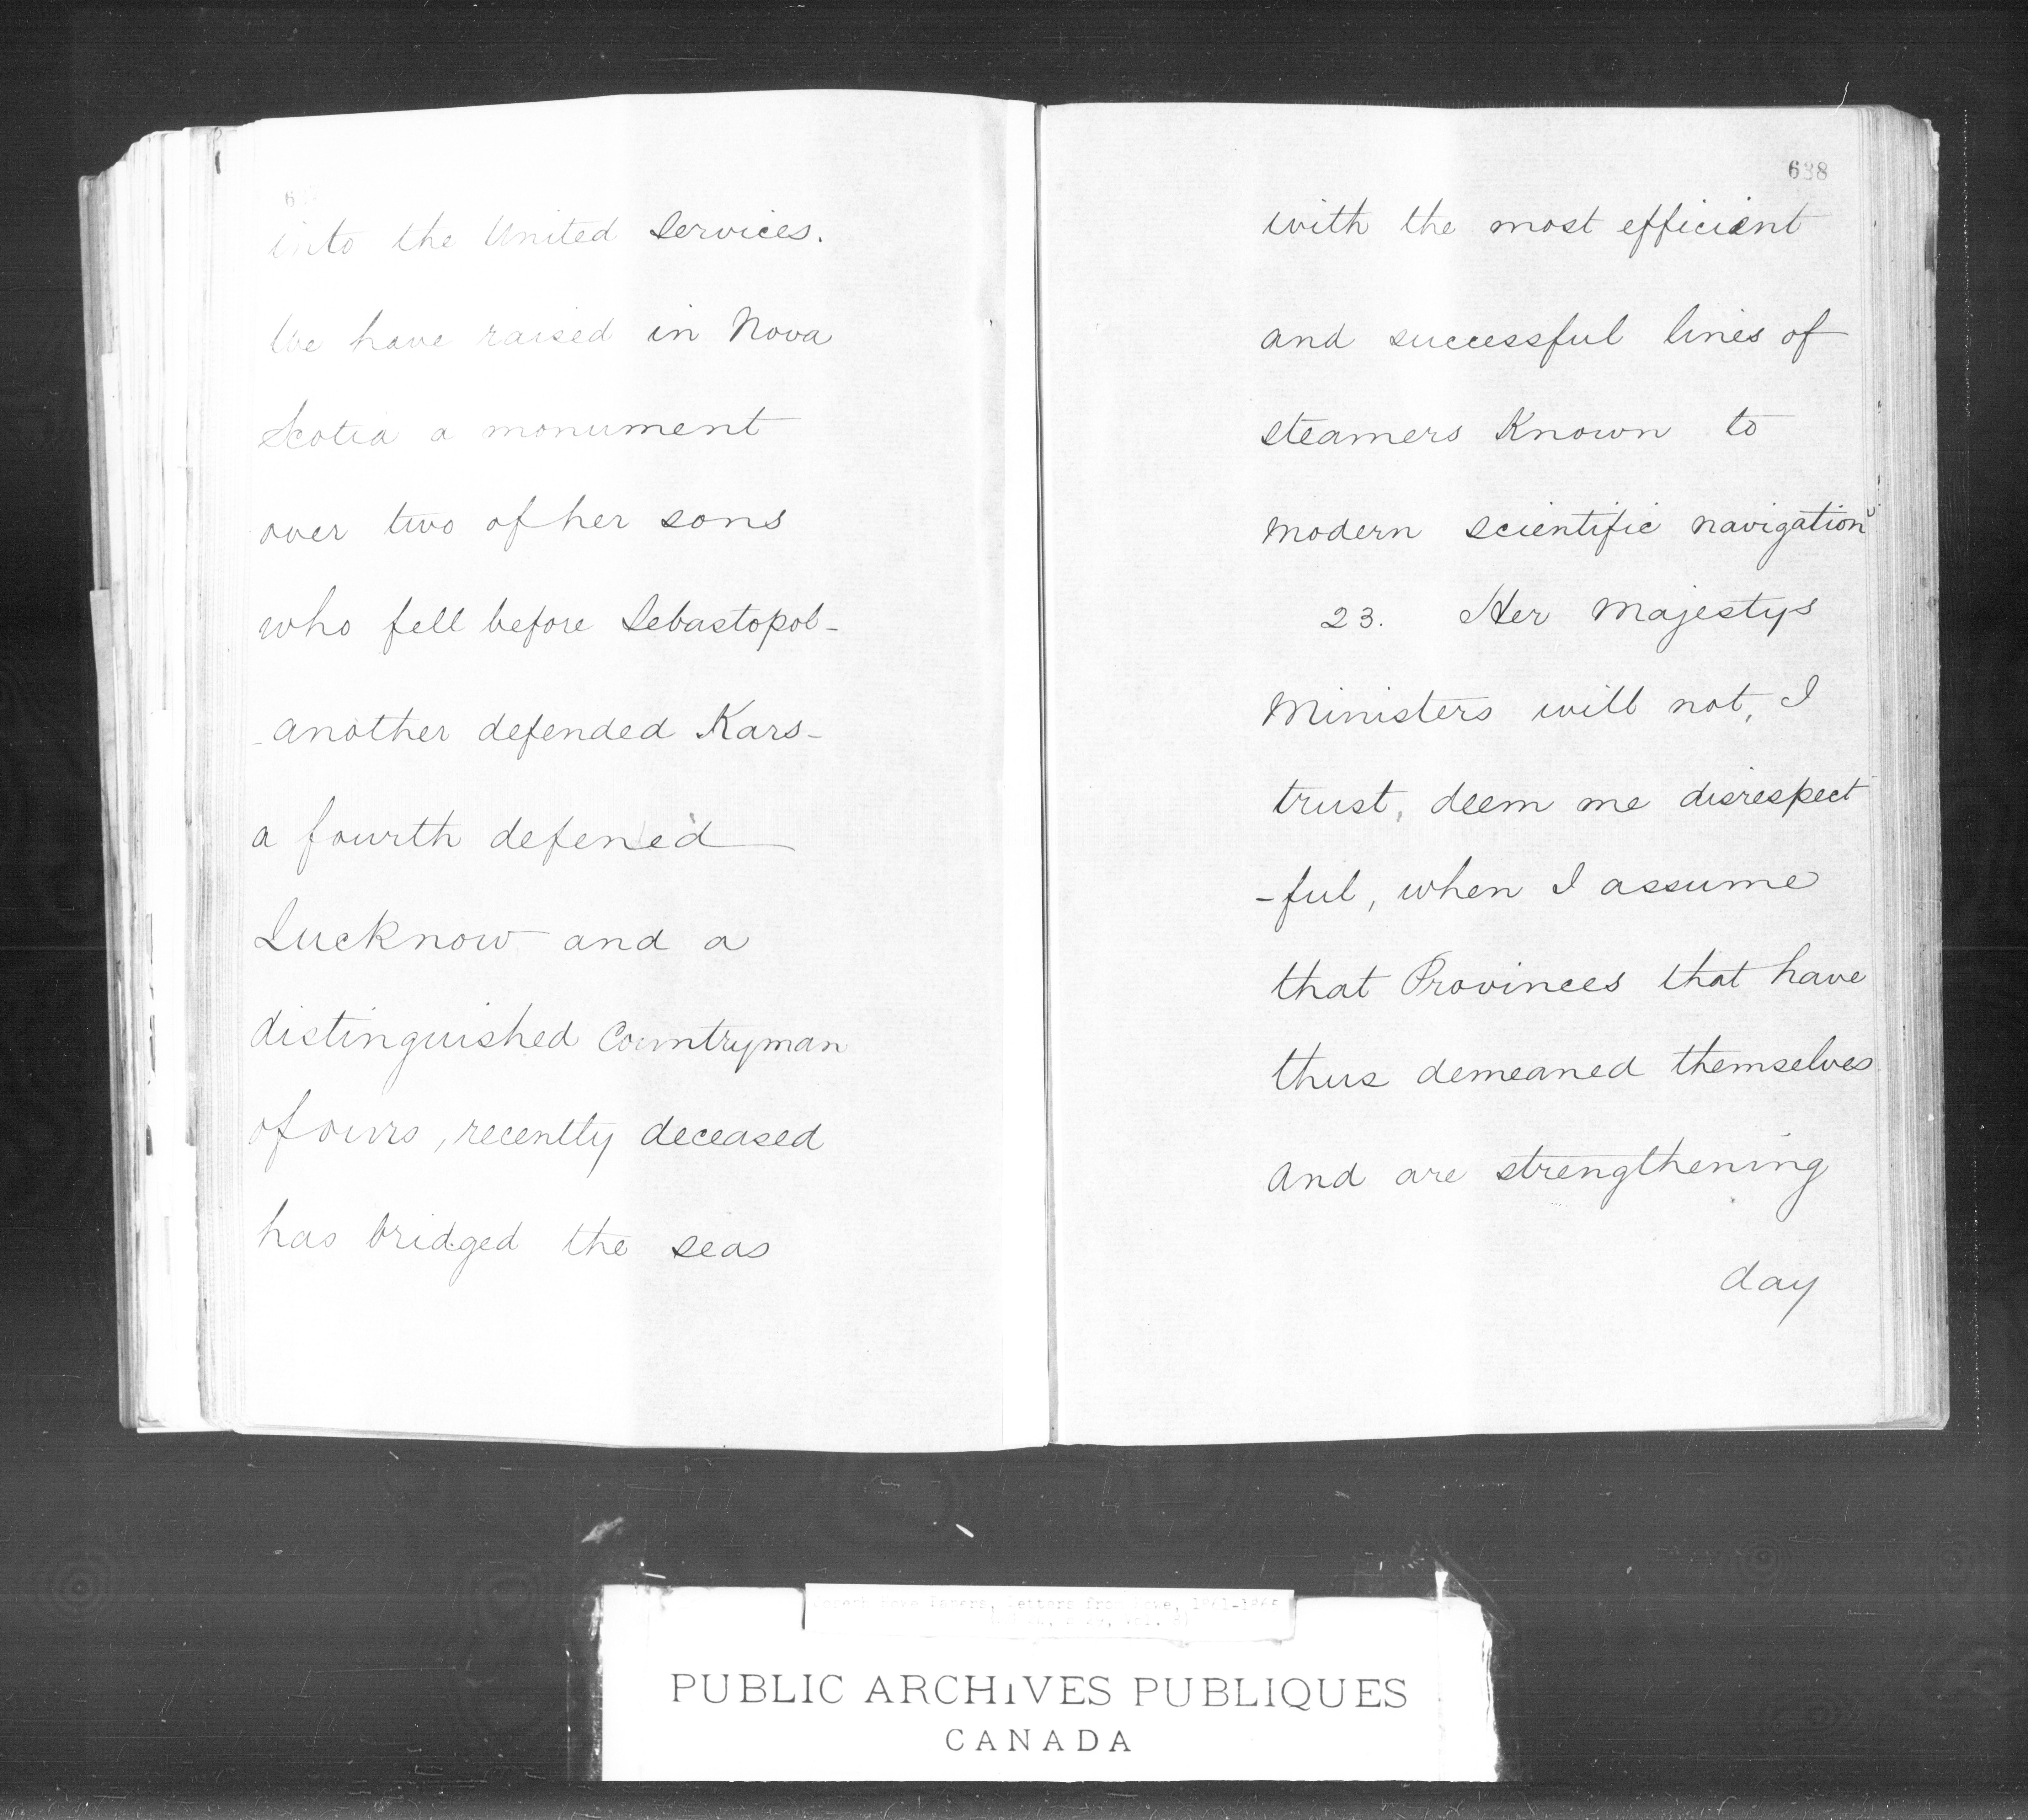 into the United Services.
We have raised in Nova
Scotia a monument
over two of her sons
who fell before Sebastopol-
-another defended Kars-
a fourth defened
Lucknow and a
distinguished Countryman
of ours, recently deceased
has bridged the seas
638
with the most efficient
and successful lines of
steamers Known to
modern scientific navigation
23. Her Majestys
Ministers will not, I
trust, deem me disrespect
-ful, when I assume
that Provinces that have
thus demeaned themselves
and are strengthening
day
Papers, Letters from Howe,
PUBLIC ARCHIVES PUBLIQUES
CANADA